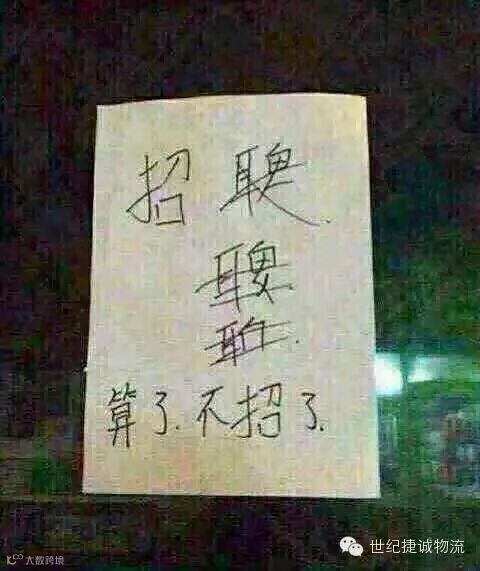 招
算了.不招了.
世纪捷诚物流
大数跨境